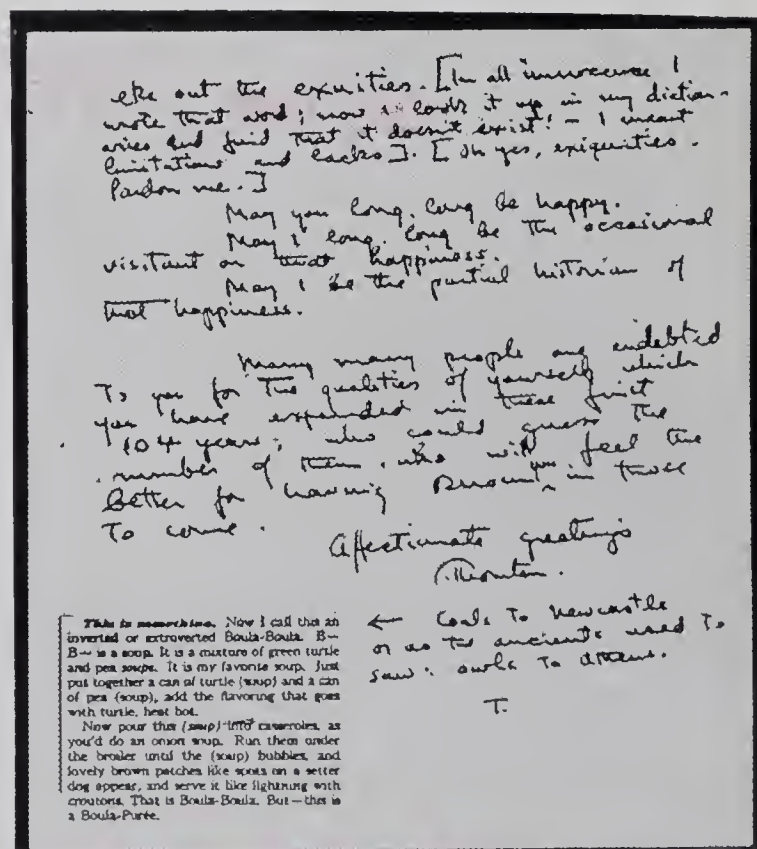 eke out the exuities. [In all innocence I
wrote that word; now I look it up in my diction-
aries and find that it doesn't exist! – I meant
limitations and lacks]. [Oh yes, exiquities.
Pardon me.]
May you long, long be happy.
May I long, long be the occasional
visitant on that happiness.
May I be the partial historian of
that happiness.
Many many people are indebted
To you for the qualities of yourself which
you have expanded in these first
104 years; who could guess the
number of them who will feel the
better for having known you in those
To come.
Affectionate greetings
Thornton.
This is something. Now I call this an
inverted or extroverted Boula-Boula. B—
B— is a soup. It is a mixture of green turtle
and pea soups. It is my favorite soup. Just
put together a can of turtle (soup) and a can
of pea (soup), add the flavoring that goes
with turtle, heat hot.
Now pour this (soup) into casseroles, as
you'd do an onion soup. Run them under
the broiler until the (soup) bubbles, and
lovely brown patches like spots on a setter
dog appear, and serve it like lightning with
croutons. That is Boula-Boula. But—this is
a Boula-Purée.
← Coals to Newcastle
or as the ancients used to
saw: owls to Athens.
T.